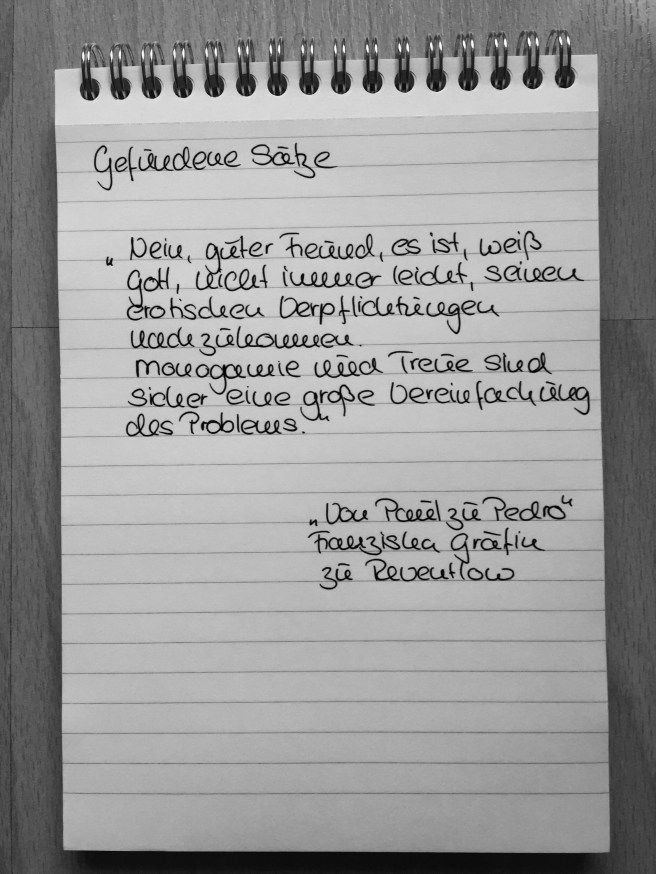 Gefundene Sätze
„Nein, guter Freund, es ist, weiß
Gott, nicht immer leicht, seinen
erotischen Verpflichtungen
nachzukommen.
Monogamie und Treue sind
sicher eine große Vereinfachung
des Problems.“
„Von Paul zu Pedro“
Franziska Gräfin
zu Reventlow